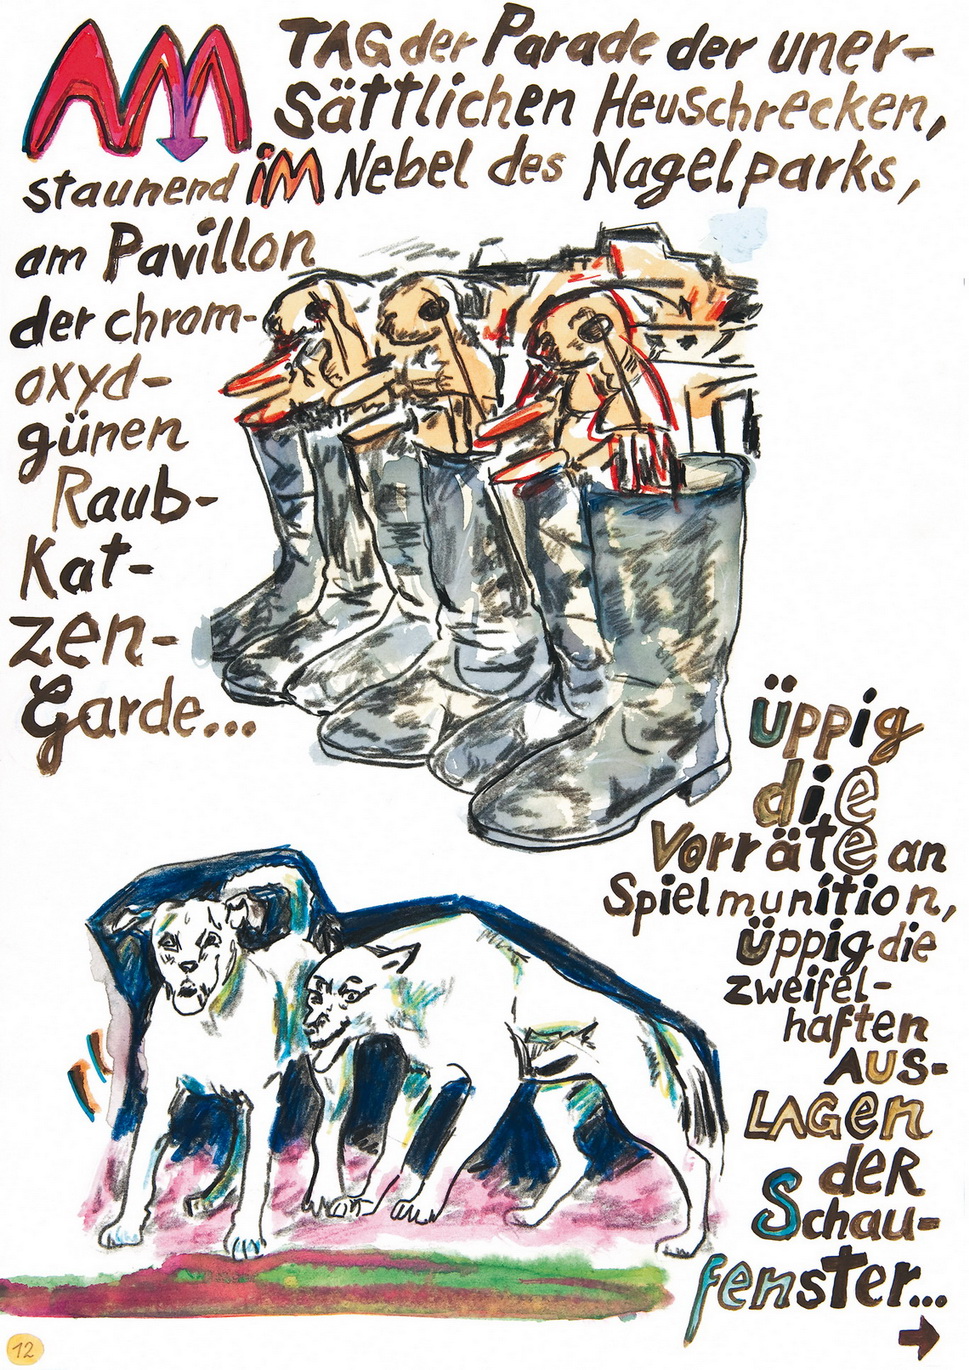 AM TAG der Parade der uner-
Sättlichen Heuschrecken,
staunend iM Nebel des Nagelparks,
am Pavillon
der chrom-
oxyd-
günen
Raub-
Kat-
zen-
Garde...
Üppig
die
Vorräte an
Spielmunition,
üppig die
zweifel-
haften
AUS-
LAGen
deR
Schau-
fenster...
12